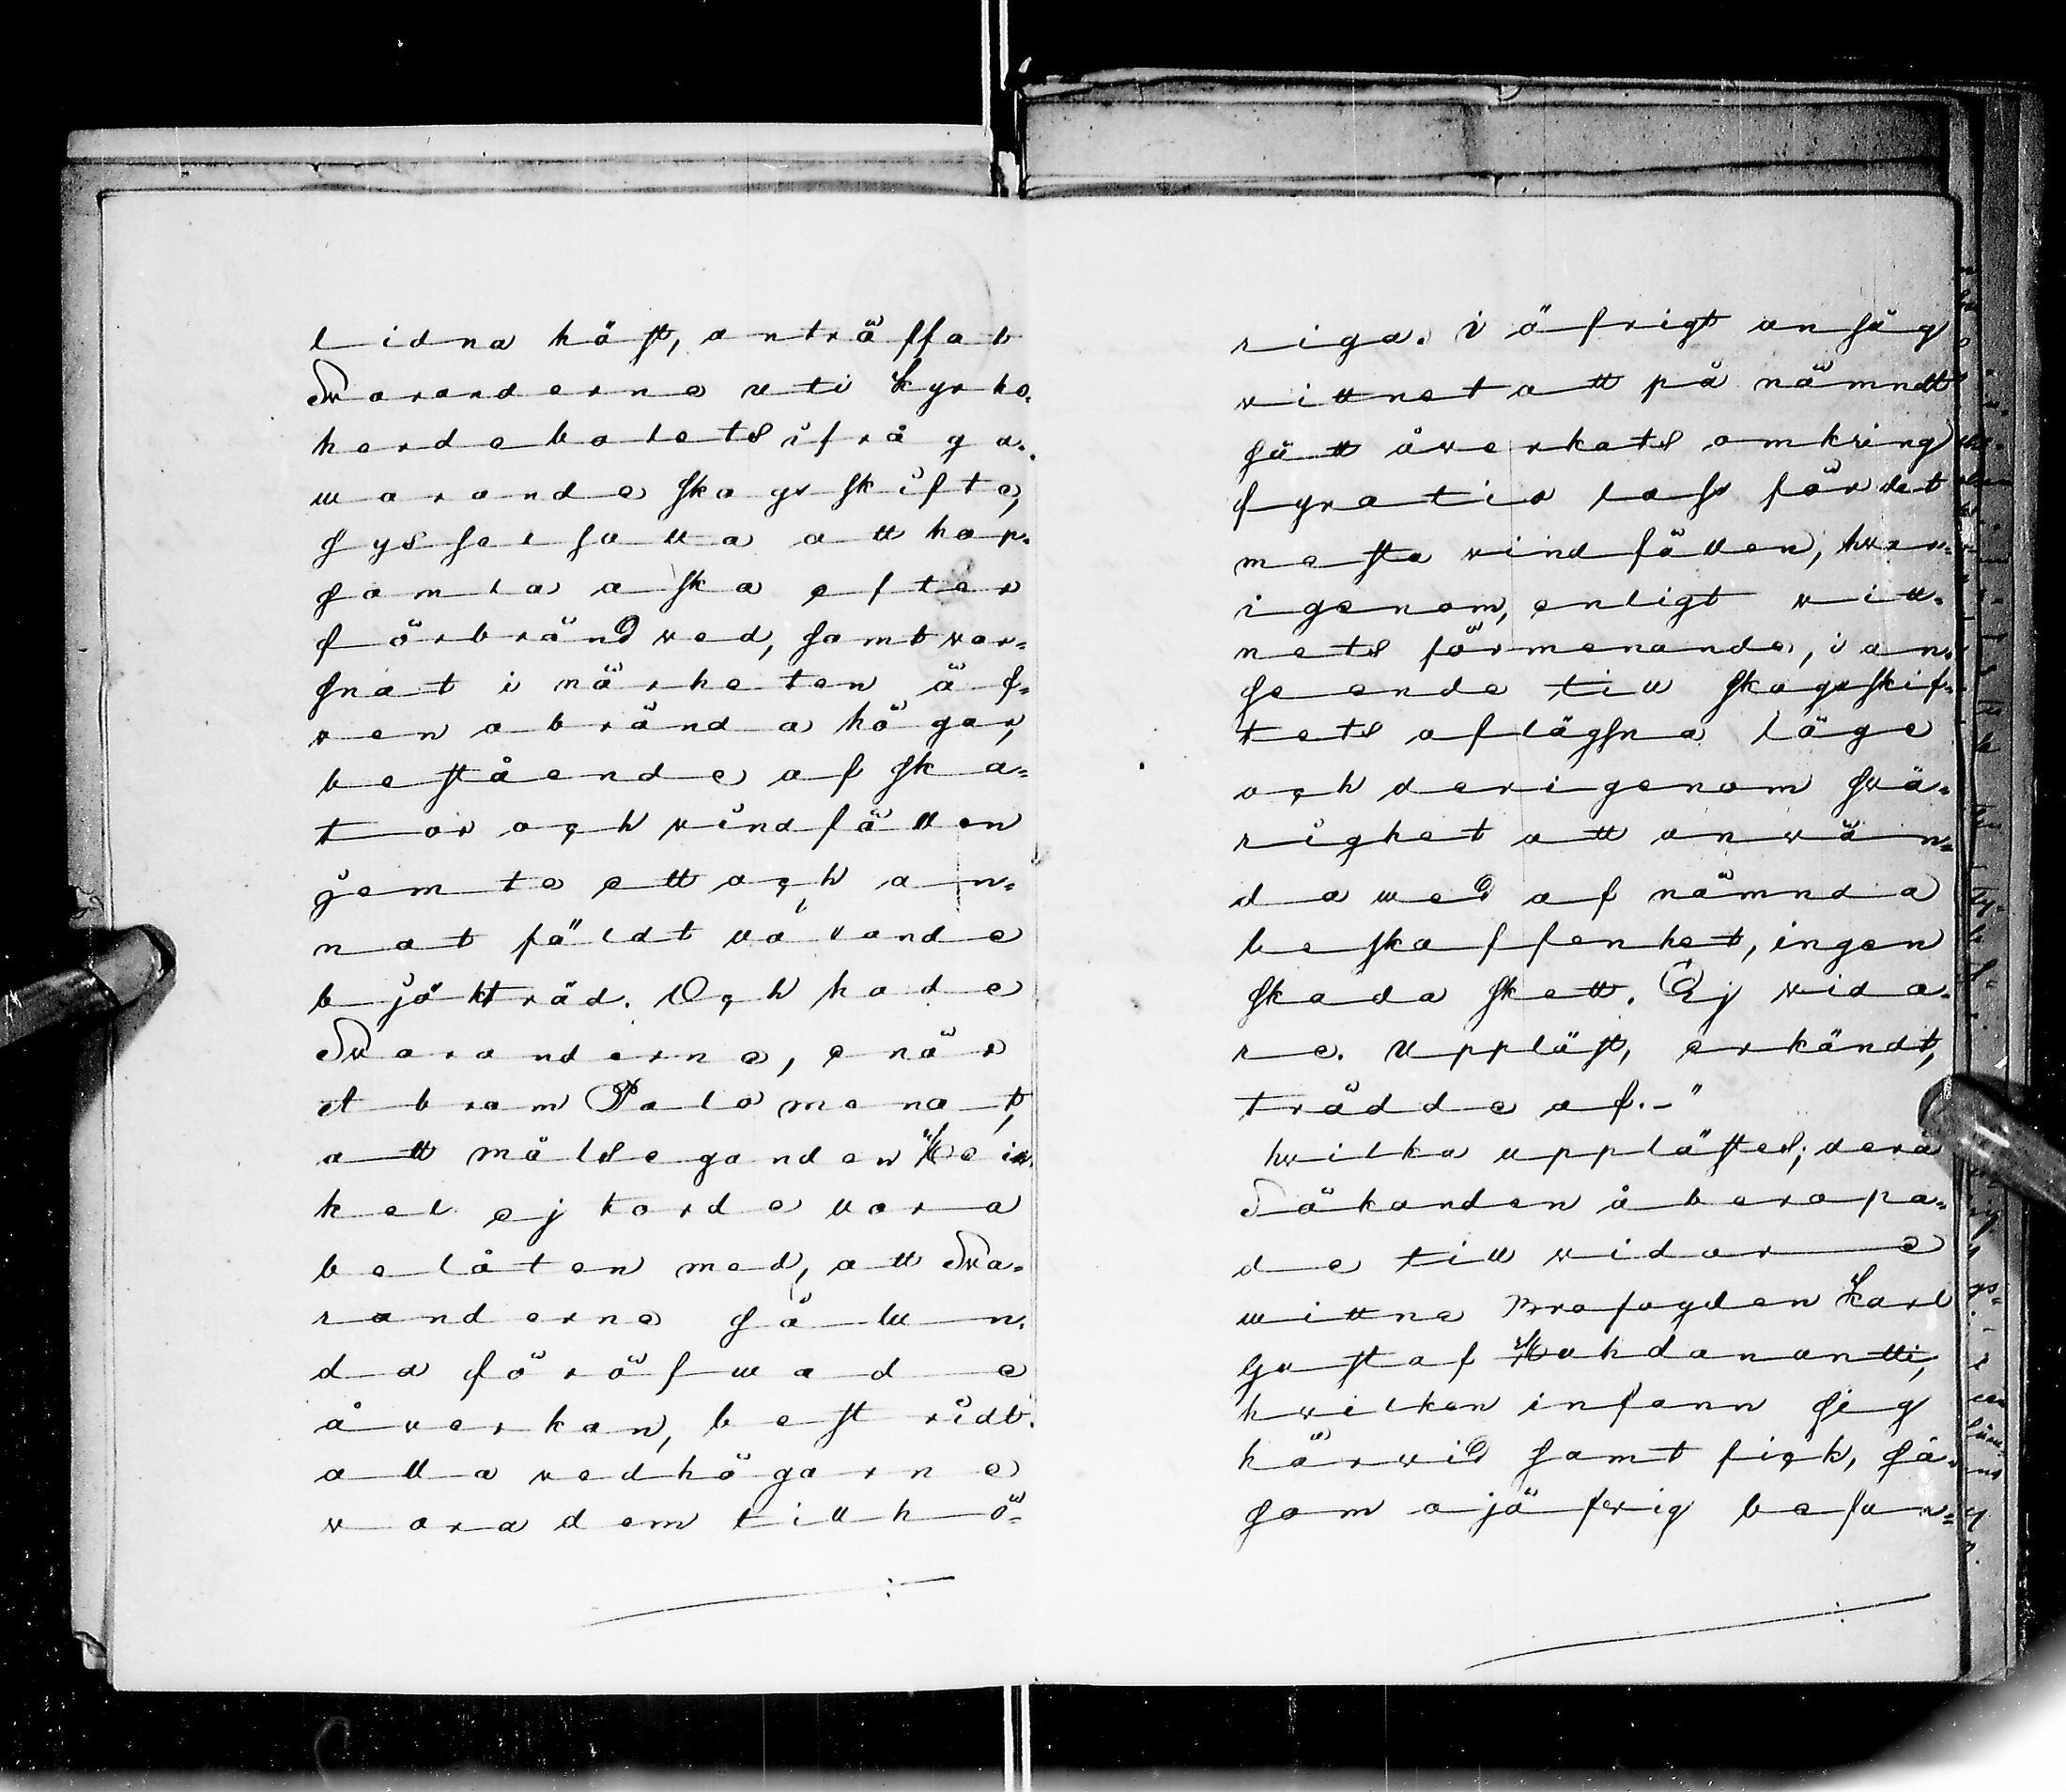 lidna höst, anträffat
Swaranderne uti Kyrko-
herdebolets ifråga-
warande skogsskifte,
sysselsatta att hop-
samla aska efter
förbränd wed, samt war-
snat i närheten äf-
wen obrända högar,
bestående af ska-
tor och vindfällen
jemte ett och an-
nat fäldt växande
björkträd. Och hade
Swaranderne, enär
Abram Palo menat,
att målseganden Hei-
kel ej torde vara
belåten med, att Swa-
randerne sålun-
da föröfwade
åverkan, bestridt
alla vedhögarne
wara dem tillhö-
riga. I öfrigt ansåg
wittnet att på nämndt
sätt åverkats omkring
fyratio lass för det
mesta vindfällen, hvar-
igenom, enligt witt-
nets förmenande, i an-
seende till skogsskif-
tets aflägsna läge
och derigenom swå-
righet att anwän-
da wed af nämnda
beskaffenhet, ingen
skada skett. Ej wida-
re. Uppläst, erkändt,
trädde af.-"
hwilka upplästes; derå
Sökanden åberopa-
de till widare
wittne Brofogden Karl
Gustaf Kohdanantti,
hwilken infann sig
härwid samt fick, så-
som ojäfwig befun-